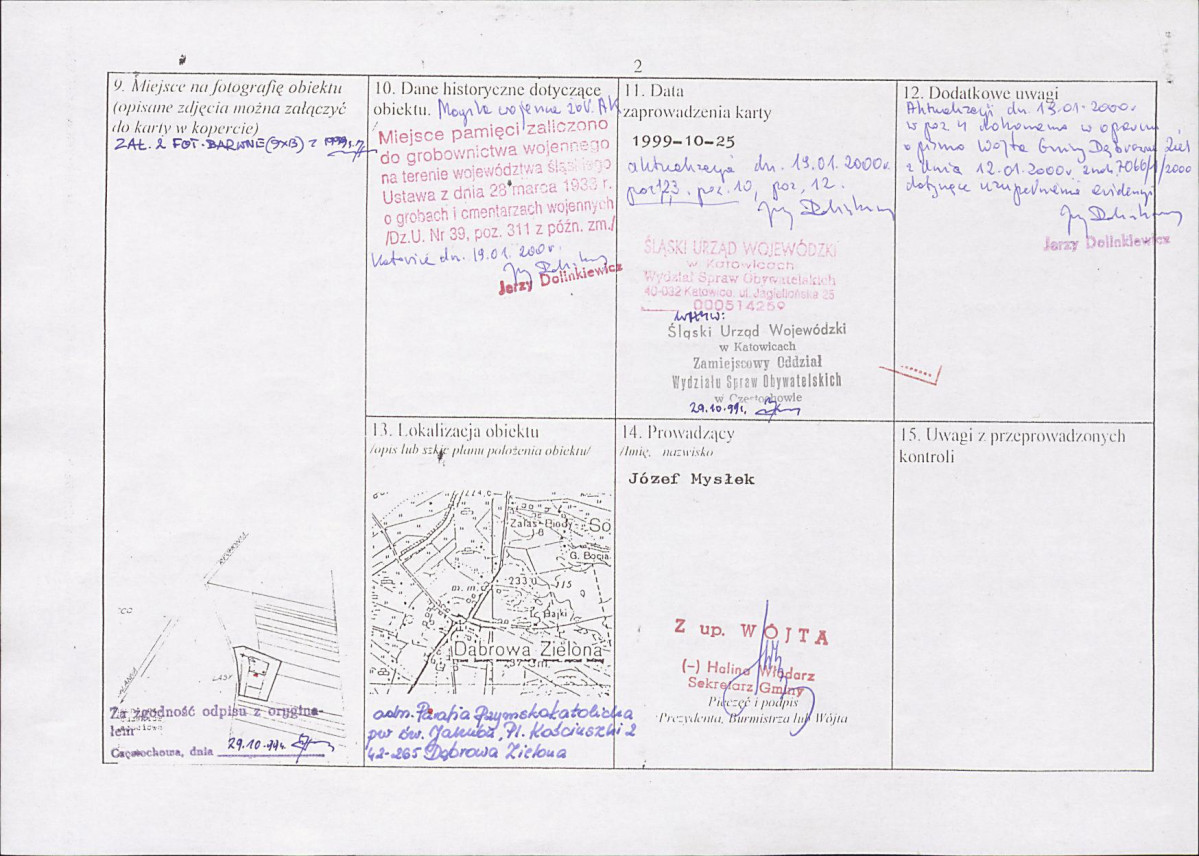 2
9. Miejsce na fotografię obiektu
(opisane zdjęcia można załączyć
do karty w kopercie)
ZAŁ. 2 FOT. BARWNE (9x13) z
10. Dane historyczne dotyczące
obiektu. Mogiła wojenna żoł. AK
Miejsce pamięci zaliczono
do grobownictwa wojennego
na terenie województwa śląskiego
Ustawa z dnia 28 marca 1933 r.
o grobach i cmentarzach wojennych
/Dz.U. Nr 39, poz. 311 z późn. zm./
Katowice dn. 19.01.2000r.
Jerzy Dolinkiewicz
11. Data
zaprowadzenia karty
1999-10-25
aktualizacja dn. 19.01.2000r.
poz. 10, poz. 12.
ŚLĄSKI URZĄD WOJEWÓDZKI
w Katowicach
Wydział Spraw Obywatelskich
40-032 Katowice, ul. Jagiellońska 25
000514259
Śląski Urząd Wojewódzki
w Katowicach
Zamiejscowy Oddział
Wydziału Spraw Obywatelskich
w Częstochowie
29.10.99r.
12. Dodatkowe uwagi
Aktualizacji dn. 19.01.2000r
w poz 4 dokonano w oparciu
o pismo Wójta Gminy Dąbrowa Ziel.
z dnia 12.01.2000r. znak 7066/1/2000
dotyczące uzupełnienia ewidencji
Jerzy Dolinkiewicz
13. Lokalizacja obiektu
/opis lub szkic planu położenia obiektu/
Zalas-Piody
So
G. Bocia
233.0
515
m. m.
Bajki
Dąbrowa Zielona
adm. Parafia Rzymskokatolicka
pw św. Jakuba, Pl. Kościuszki 2
42-265 Dąbrowa Zielona
14. Prowadzący
/Imię, nazwisko
Józef Mysłek
Z up. WÓJTA
(-) Halina Włodarz
Sekretarz Gminy
Pieczęć i podpis
Prezydenta, Burmistrza lub Wójta
15. Uwagi z przeprowadzonych
kontroli
Za zgodność odpisu z orygina-
łem
Częstochowa, dnia 29.10.99r.